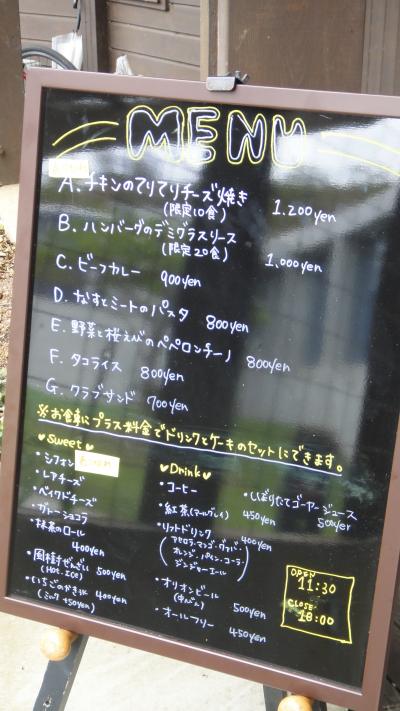 MENU
A. チキンのてりてりチーズ焼き
(限定10食) 1.200yen
B. ハンバーグのデミグラスソース
(限定20食) 1,000yen
C. ビーフカレー 900yen
D. なすとミートのパスタ 800yen
E. 野菜と桜えびのペペロンチーノ 800yen
F. タコライス 800yen
G. クラブサンド 700yen
※お食事にプラス料金でドリンクとケーキのセットにできます。
♥Sweet♥
・シフォン
・レアチーズ
・ベイクドチーズ
・ガトーショコラ
・抹茶のロール
400yen
・風樹ぜんざい
(Hot. Ice) 500yen
・いちごのかき氷 400yen
(ミルク +50yen)
♥Drink♥
・コーヒー
・紅茶(アールグレイ)
450yen
・しぼりたてゴーヤージュース
500yen
・ソフトドリンク 400yen
(アセロラ・マンゴ・グァバ・
オレンジ・パイン・コーラ・
ジンジャーエール)
・オリオンビール
(中びん) 500yen
・オールフリー
450yen
OPEN
11:30
CLOSE
18:00